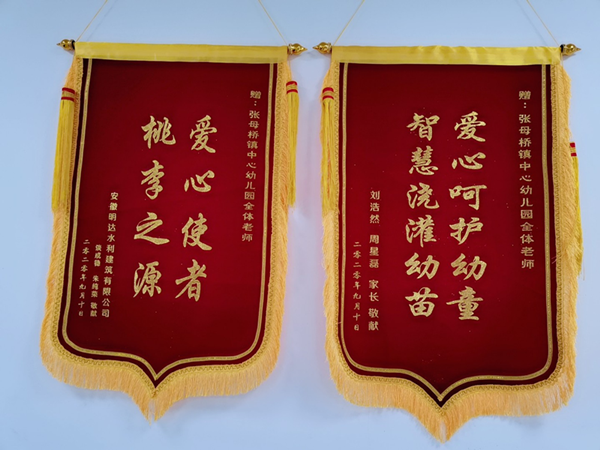 赠：张母桥镇中心幼儿园全体老师
爱心使者
桃李之源
安徽明达水利建筑有限公司
敬献
二零二零年九月十日
赠：张母桥镇中心幼儿园全体老师
爱心呵护幼童
智慧浇灌幼苗
刘浩然 周星磊 家长 敬献
二零二零年九月十日